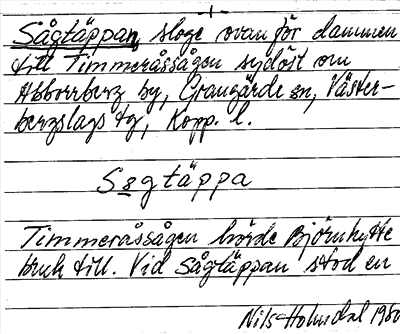 Sågtäppan, sloge ovan för dammen
till Timmeråssågen sydöst om
Abborrberg by, Grangärde sn, Väster-
bergslags tg, Kopp. l.
Sågtäppa
Timmeråssågen hörde Björnhytte
bruk till. Vid Sågtäppan stod en
Nils Holmdal 1980